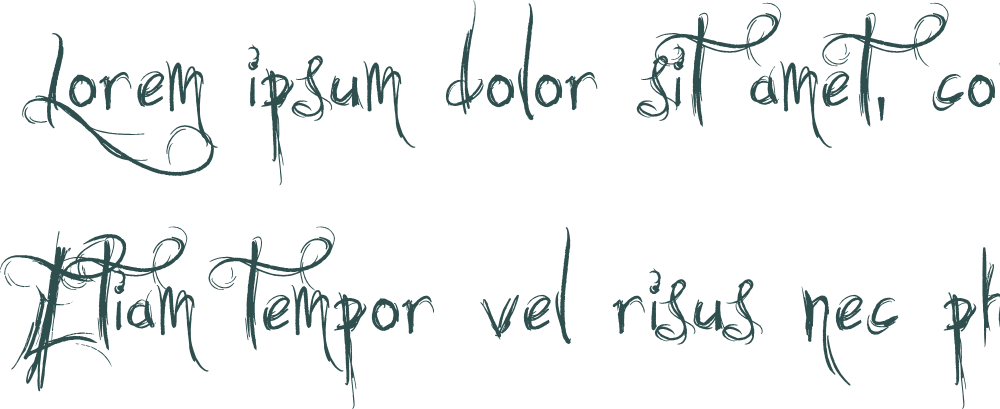 Lorem ipsum dolor sit amet, co
Etiam tempor vel risus nec ph